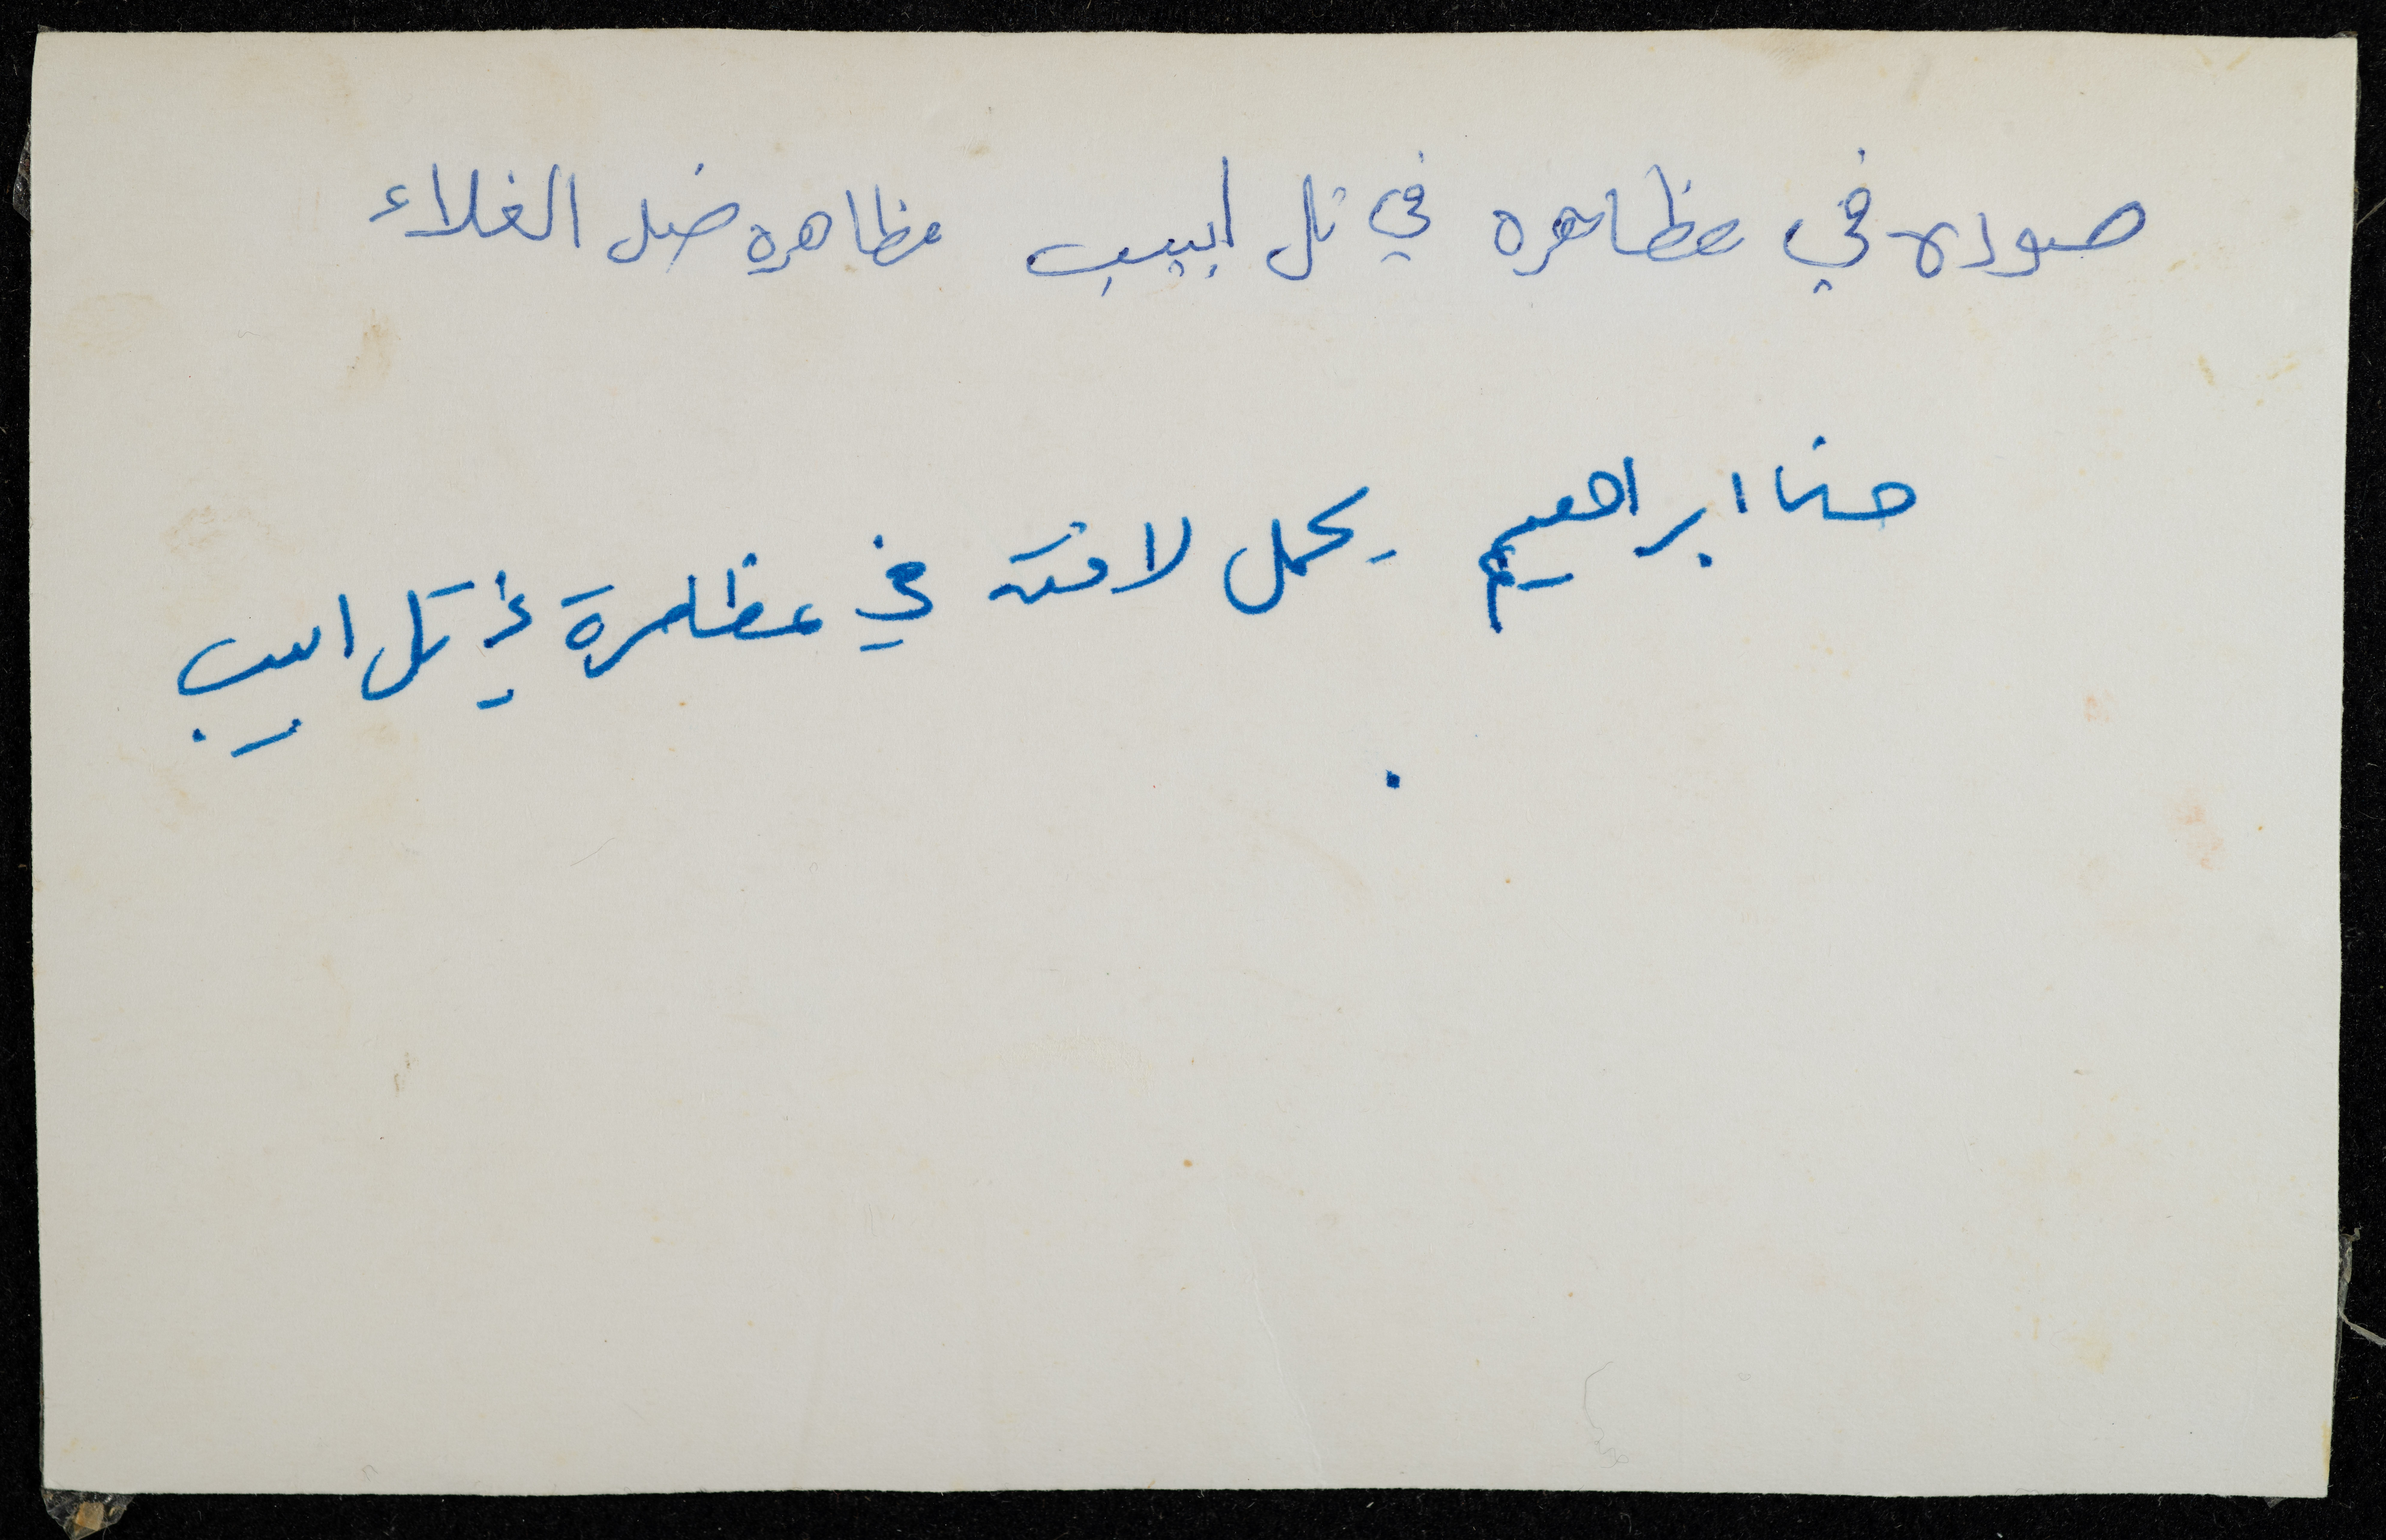 صوره في مظاهره في تل ابيب مظاهره ضد الغلاء
حنا ابراهيم يحمل لافتة في مظاهرة في تل ابيب